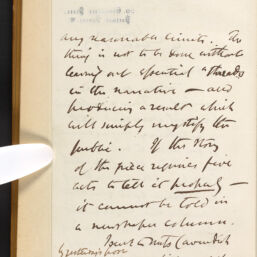 any reasonable limits. The
thing is not to be done without
leaving out essential "threads"
in the narrative – and
producing a result which
will simply mystify the
public. If the story
of the piece requires five
acts to tell it properly –
it cannot be told in
a newspaper column.
I sent a note to Cavendish
by yesterday's post